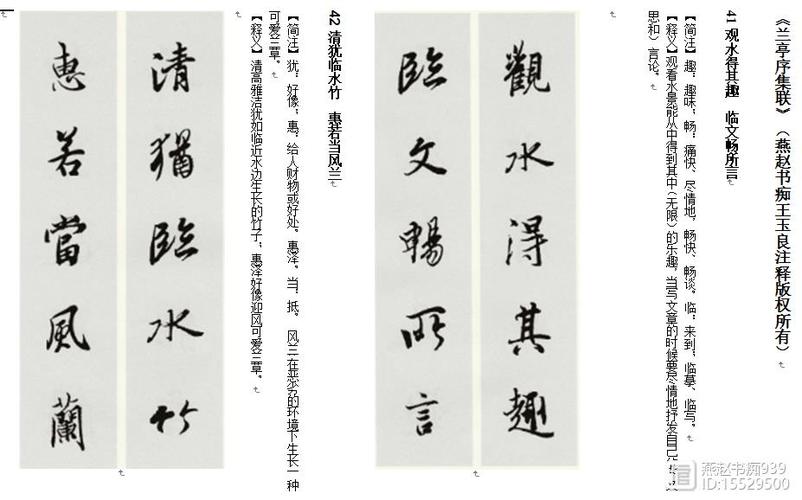 《兰亭序集联》（燕赵书痴王玉良注释版权所有）
41 观水得其趣　临文畅所言
【简注】趣：趣味，畅：痛快、尽情地，畅快、畅谈。临：来到，临摹、临写。
【释义】观看水景能从中得到其中（无限）的乐趣，当写文章的时候要尽情地抒发自己
思和）言论。
觀水得其趣
臨文暢所言
42 清犹临水竹　惠若当风兰
【简注】犹：好像，惠：给人财物或好处。惠泽。当：抵。　风兰在恶劣的环境下生长一种
可爱兰草。
【释义】清高雅洁犹如临近水边生长的竹子，惠泽好像迎风可爱兰草。
清猶臨水竹
惠若當風蘭
燕赵书痴939
ID:15529500